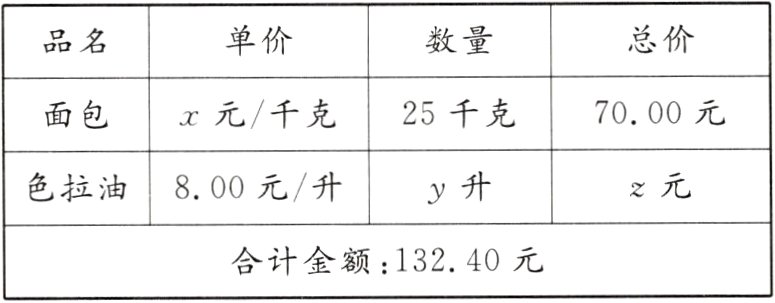 品名 单价 数量 总价
面包 x 元/千克 25 千克 70.00 元
色拉油 8.00 元/升 y 升 z 元
合计金额:132.40 元